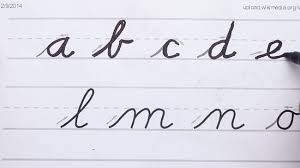 2/9/2014 upload.wikimedia.org/w
a b c d e
l m n o